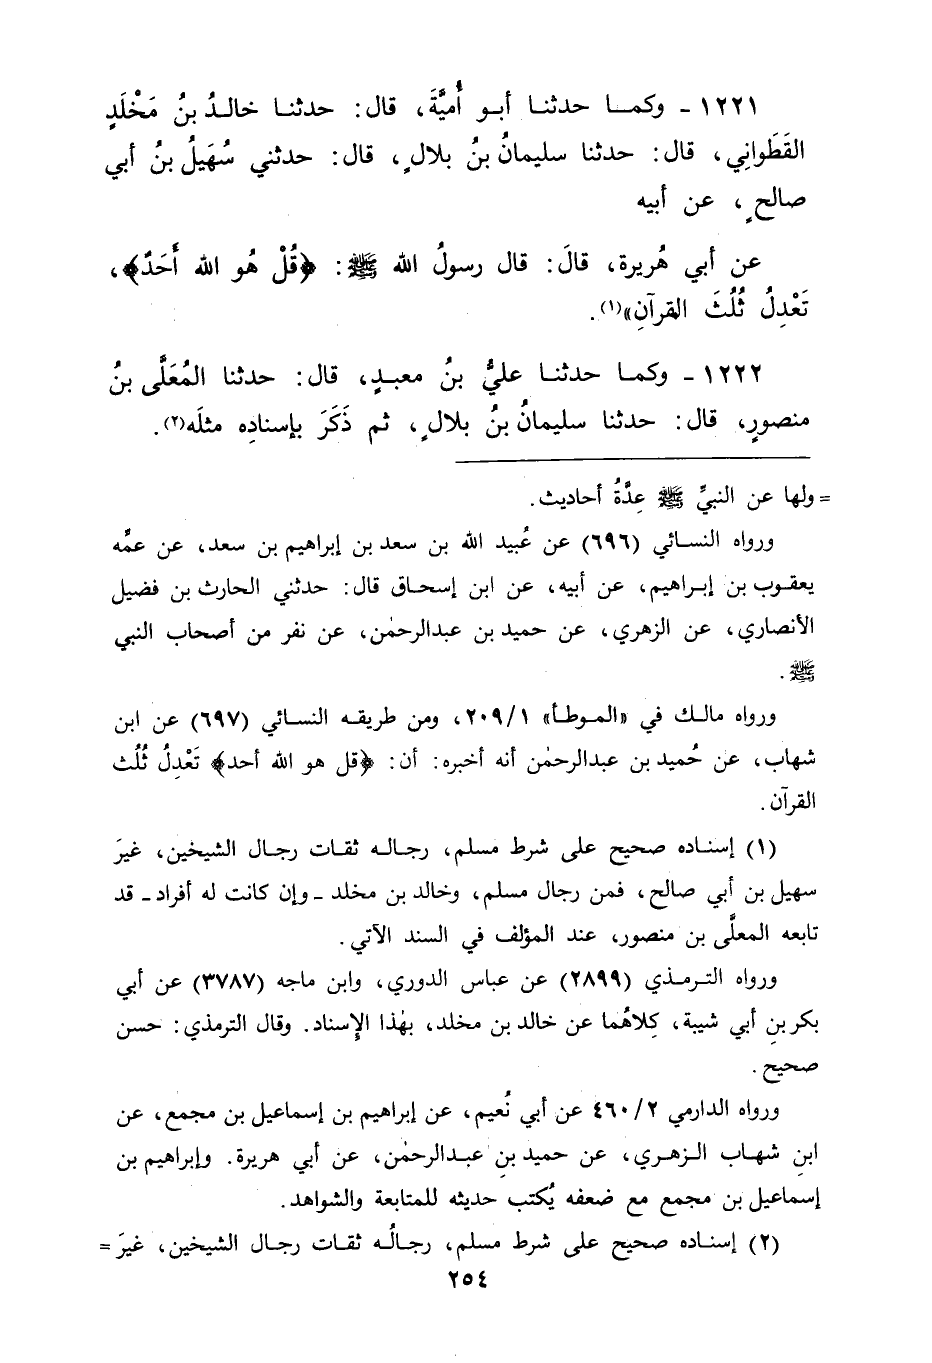 ١٢٢١ - وكمـا حدثنـا أبـو أُميَّةَ، قال: حدثنـا خالـدُ بنُ مَخْلَدٍ
القَطَوانِي، قال: حدثنا سليمانُ بنُ بلالٍ، قال: حدثني سُهَيلُ بنُ أبي
صالحٍ، عن أبيه
عن أبي هُريرة، قالَ: قال رسولُ الله ﷺ: ﴿قُلْ هُو الله أَحَدٌ﴾،
تَعْدِلُ ثُلُثَ القرآنِ»(١).
١٢٢٢ - وكمـا حدثنـا عليُّ بنُ معبـدٍ، قال: حدثنا المُعَلَّى بنُ
منصورٍ، قال: حدثنا سليمانُ بنُ بلالٍ، ثم ذَكَرَ بإسنادِه مثلَه(٢).
= ولها عن النبيِّ ﷺ عِدَّةُ أحاديث.
ورواه النسـائي (٦٩٦) عن عُبيد الله بن سعد بن إبراهيم بن سعد، عن عمِّه
يعقـوب بن إبـراهيم، عن أبيه، عن ابن إسحـاق قال: حدثني الحارث بن فضيل
الأنصاري، عن الزهري، عن حميد بن عبدالرحمٰن، عن نفر من أصحاب النبي
ﷺ.
ورواه مالـك في «المـوطـأ» ٢٠٩/١، ومن طريقـه النسـائي (٦٩٧) عن ابن
شهاب، عن حُميد بن عبدالرحمٰن أنه أخبره: أن: ﴿قل هو الله أحد﴾ تَعْدِلُ ثُلُث
القرآن.
(١) إسنـاده صحيح على شرط مسلم، رجـالـه ثقات رجال الشيخين، غيرَ
سهيل بن أبي صالح، فمن رجال مسلم، وخالد بن مخلد - وإن كانت له أفراد - قد
تابعه المعلَّى بن منصور، عند المؤلف في السند الآتي.
ورواه التـرمـذي (٢٨٩٩) عن عباس الدوري، وابن ماجه (٣٧٨٧) عن أبي
بكر بنِ أبي شيبة، كِلاهُما عن خالد بن مخلد، بهٰذا الإِسناد. وقال الترمذي: حسن
صحيح.
ورواه الدارمي ٤٦٠/٢ عن أبي نُعيم، عن إبراهيم بن إسماعيل بن مجمع، عن
ابنِ شهـاب الـزهـري، عن حميد بنِ عبـدالرحمٰن، عن أبي هريرة. وإبراهيم بن
إسماعيل بن مجمع مع ضعفه يُكتب حديثه للمتابعة والشواهد.
(٢) إسنـاده صحيح على شرط مسلم، رجالُـه ثقـات رجال الشيخين، غيرَ =
٢٥٤